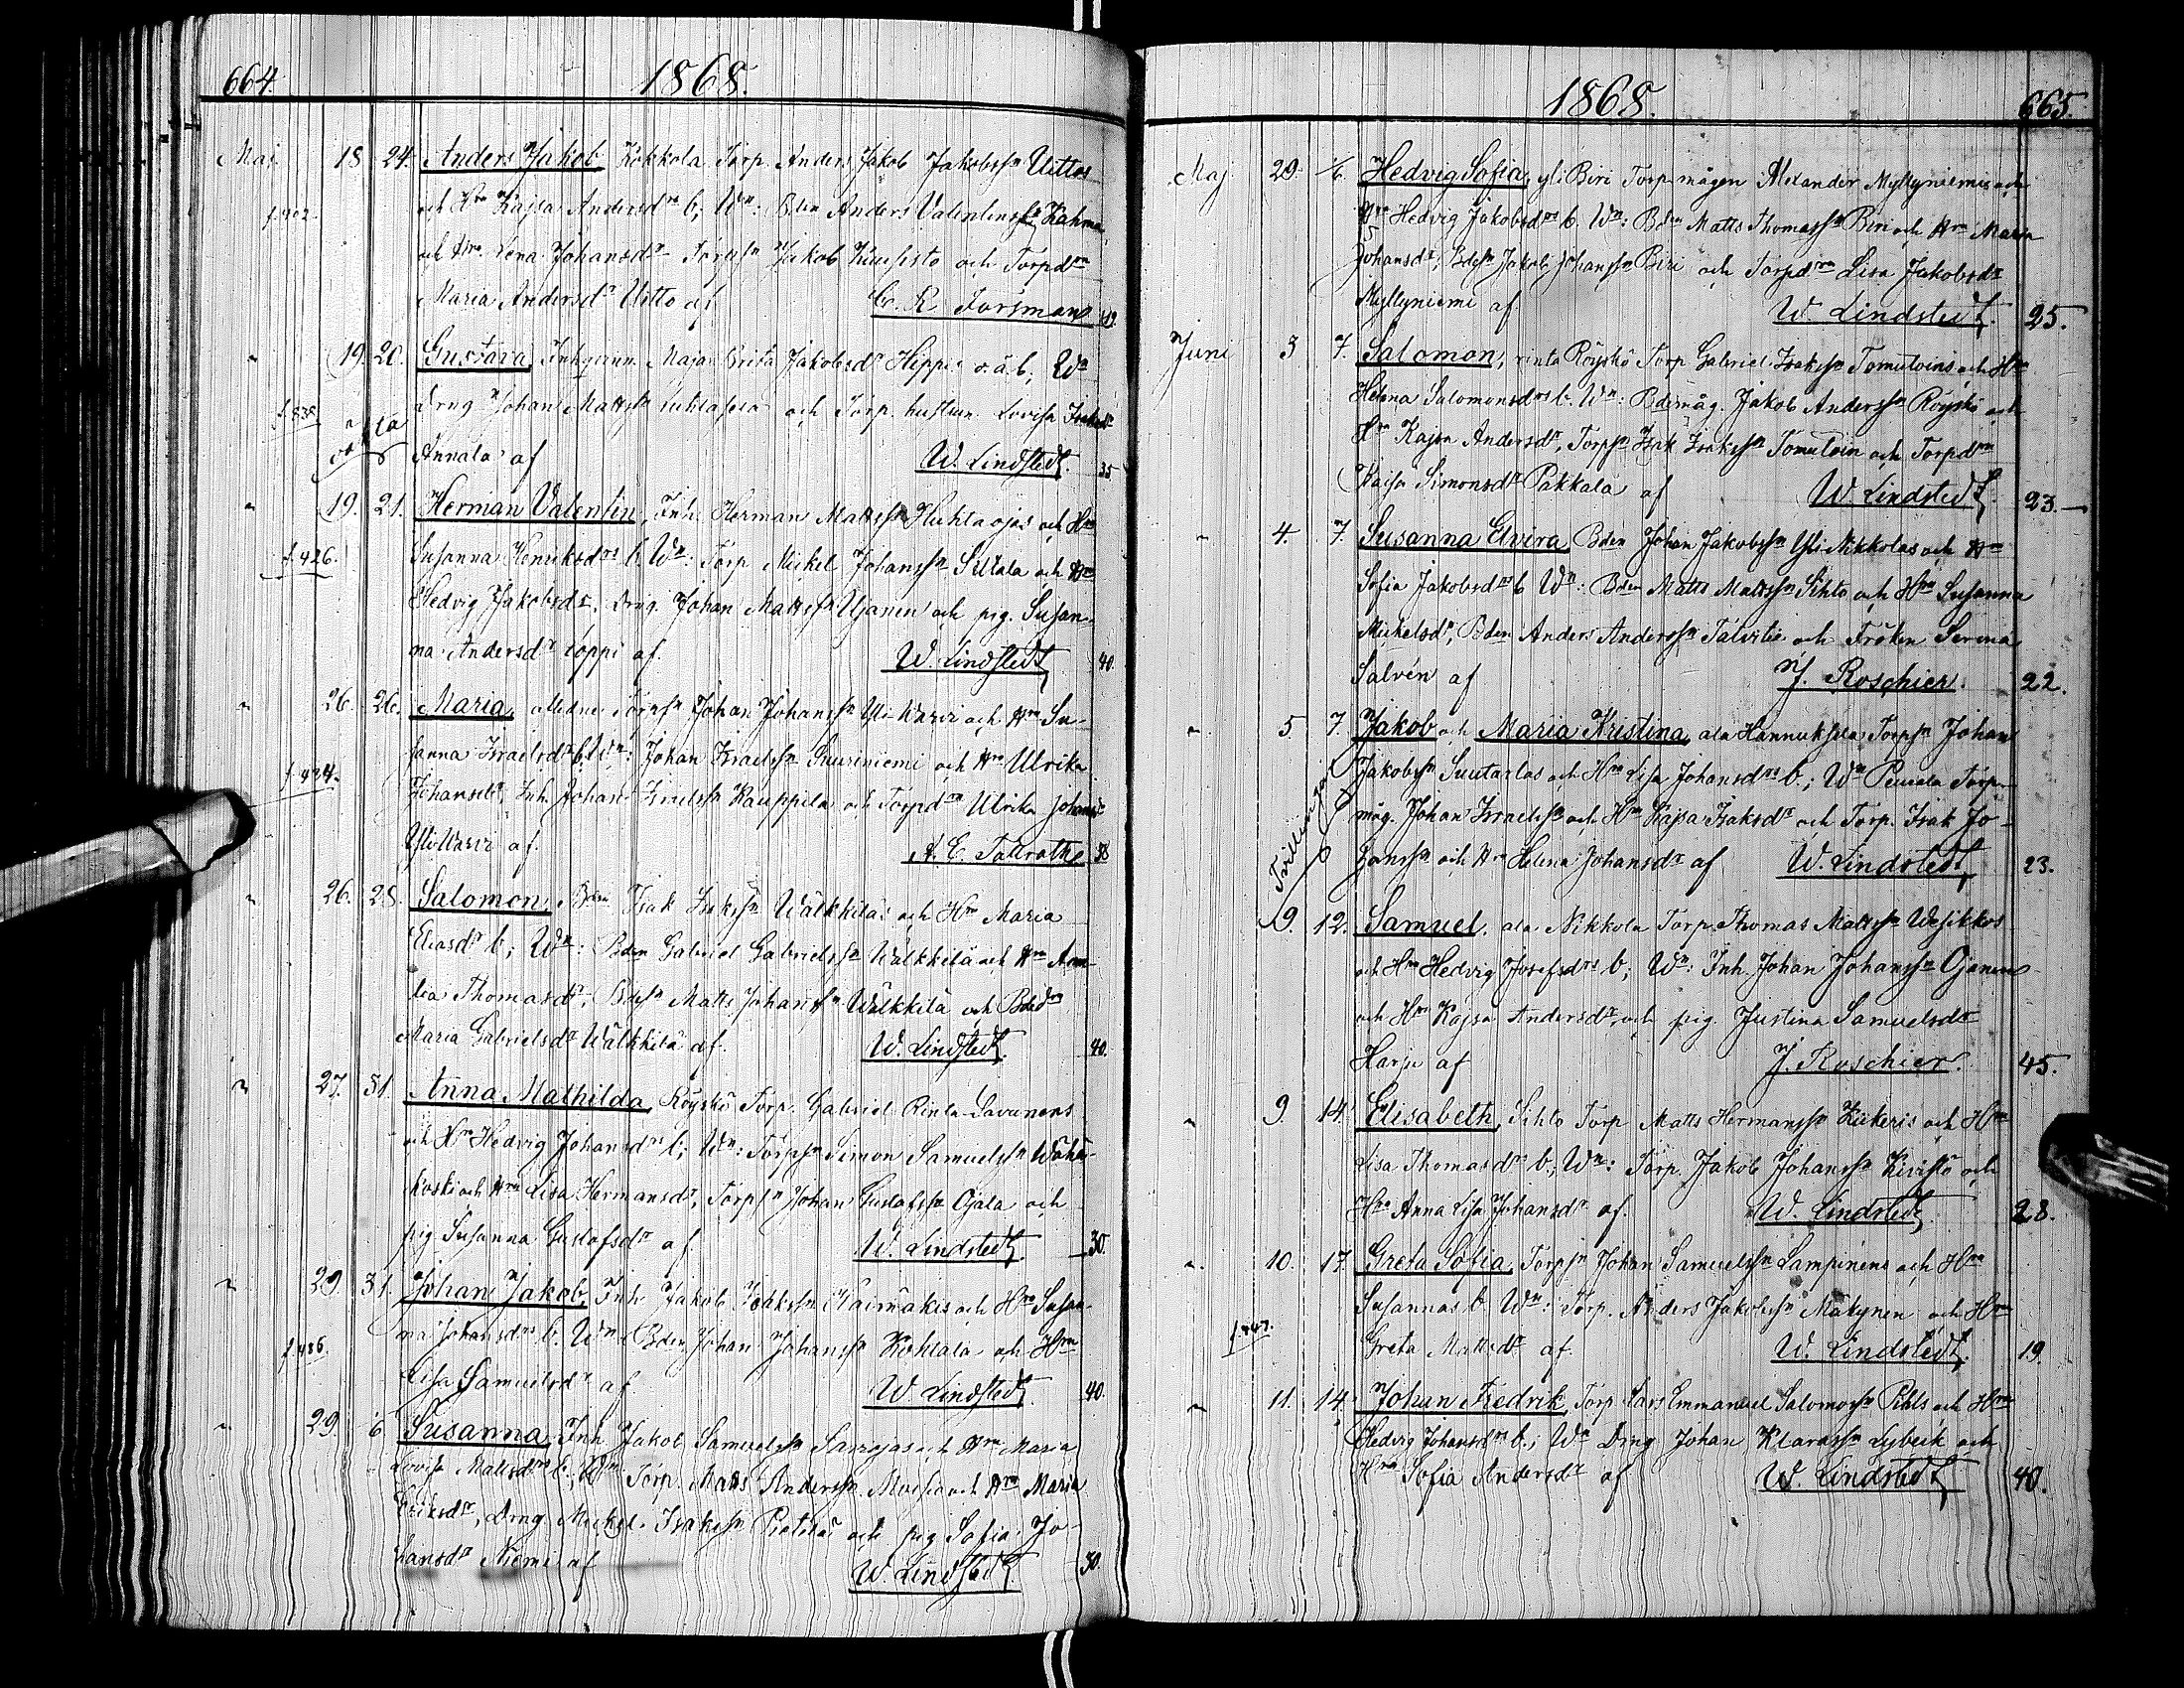 664. 1868.
Maj. 18 24. Anders Jakob Kokkola Torp. Anders Jakob Jakobssn Uittos
f. 402. och Hru Kajsa Andersdrs b; Wn: Bden Anders Valentinssn Kahma
och Hru Lena Johansdr Torpssn Jakob Kuusisto och Torpdrn
Maria Andersdr Uitto af C. R. Forsman
" 19. 20. Gustava, Inhysqvinn. Maja Brita Jakobsdr Heppi o.ä.b; Wn
f. 838 Drng Johan Mattssn och Torp. hustrun Lovisa
oäkta Annala af W. Lindstedt. 35
" 19. 21. Herman Valentin, Inh. Herman Mattssn Huhtaojas och Hru
f. 426. Susanna Henriksdrs b. Wn: Torp Mickel Johanssn Siltala och Hru
Hedvig Jakobsdr, Drng. Johan Mattssn Ujanen och pig. Susan-
na Andersdr Loppi af. W. Lindstedt 40.
" 26. 26. Maria, Torpssn Johan Johanssn Yli Warri och Hru Su-
sanna Israelsdrs b; Wn: Johan Israelssn Suuriniemi och Hru Ulrika
f. 424. Johansdr, Inh Johan Israelssn Kauppila och Torpdrn Ulrika Johansdr
Yli Warri af. A. E. Tallroth 38
" 26. 28. Salomon, Bden Isak Isakssn Wälkkiläs och Hru Maria
Eliasdrs b; Wn: Bden Gabriel Gabrielssn Wälkkilä och Hru Ama-
lia Thomasdr, Bdessn Matts Johanssn Wälkkilä och Bdedrn
Maria Gabrielsdr Wälkkilä af. W. Lindstedt. 40.
" 27. 31. Anna Mathilda, Röyskö Torp. Gabriel Rinta-Savunens
och Hru Hedvig Johansdrs b; Wn: Torpssn Simon Samuelssn Wähä-
koski och Hru Lisa Hermansdr, Torpssn Johan Gustafssn Ojala och
pig Susanna Gustafsdr af W. Lindstedt. 30.
" 29. 31. Johan Jakob, Inh Jakob Isakssn Nairmäkis och Hru Susan-
f. 486. na Johansdrs b. Wn Bden Johan Johanssn Kohtala och Hru
Lisa Samuelsdr af W. Lindstedt. 40.
" 29. 6 Susanna, Inh Jakob Samuelssn Sarrojas och Hru Maria
Lovisa Mattsdrs b; Wn Torp. Matts Anderssn och Hru Maria
Eriksdr, Drng Mickel Isakssn Pietilä och pig Sofia Jo-
hansdr Niemi af W. Lindstedt. 30.
1868. 665.
Maj 29 1/6. Hedvig Sofia, yli Biri Torp mågen Alexander Myllyniemis och
Hru Hedvig Jakobsdrs b. Wn: Bden Matts Thomassn Biri och Hru Maria
Johansdr, Bdessn Jakob Johanssn Biri och Torpdrn Lisa Jakobsdr
Myllyniemi af W. Lindstedt. 25.
Juni 3 7. Salomon, rinta Röyskö Torp Gabriel Isakssn Tomuloins och Hru
Helena Salomonsdrs b. Wn: Bdemåg. Jakob Anderssn Röyskö och
Hru Kajsa Andersdr, Torpssn Isak Isakssn Tomuloin och Torpdrn
Kaisa Simonsdr Pakkala af W. Lindstedt. 23.
" 4. 7. Susanna Elvira, Bden Johan Jakobssn Yli Nikkolas och Hru
Sofia Jakobsdrs b Wn: Bden Matts Mattssn Sihto och Hru Susanna
Mickelsdr, Bden Anders Anderssn Talvitie och Fröken Serena
Salvén af J. Roschier. 22.
" 5. 7. Jakob och Maria Kristina, ala Hannuksela Torpssn Johan
Tvillingar Jakobssn Suutarlas och Hru Lisa Johansdrs b.; Wn Peurala Torp.
måg. Johan Israelssn och Hru Kajsa Isaksdr och Torp. Isak Jo-
hanssn och Hru Helena Johansdr af W. Lindstedt, 23.
9. 12. Samuel, ala Nikkola Torp. Thomas Mattssn Wesikkos
och Hru Hedvig Josefsdrs b; Wn: Inh Johan Johanssn Ojanen
och Hru Kajsa Andersdr, och pig. Justina Samuelsdr
Harju af J. Roschier. 45.
" 9. 14. Elisabeth, Sihto Torp Matts Hermanssn Kükeris och Hru
Lisa Thomasdrs b; Wn: Torp. Jakob Johanssn Kivistö och
Hru Anna Lisa Johansdr af. W. Lindstedt, 28.
" 10. 17. Greta Sofia, Torpssn Johan Samuelssn Lampinens och Hru
f. 447. Susannas b. Wn: Torp. Anders Jakobssn Mäkynen och Hru
Greta Mattsdr af W. Lindstedt. 19.
" 11. 14. Johan Fredrik, Torp Lars Emmanuel Salomonssn Pihls och Hru
Hedvig Johansdrs b.; Wn Drng Johan Klarassn Lybeck och
Hru Sofia Andersdr af W. Lindstedt 40.